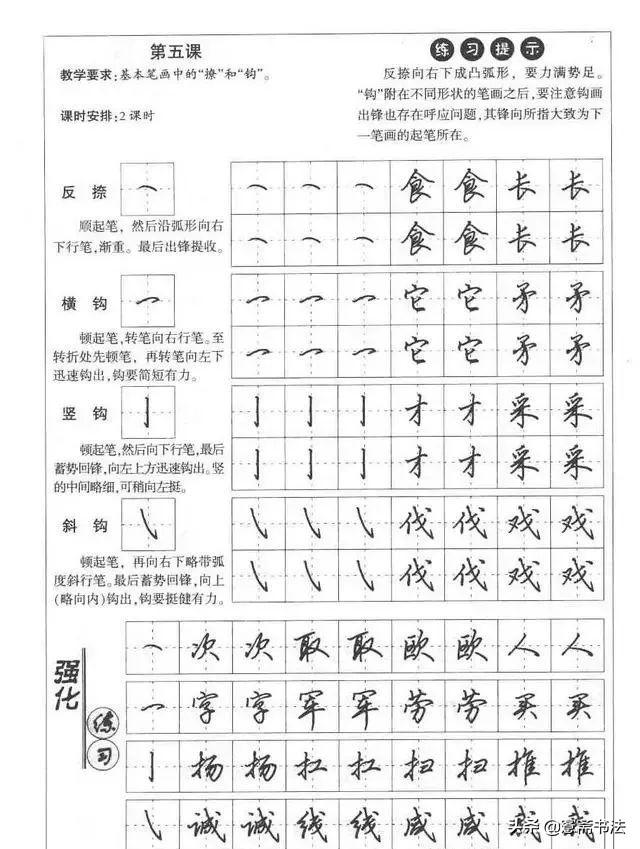 第五课
教学要求:基本笔画中的“撩”和“钩”。
课时安排:2课时
练习提示
反捺向右下成凸弧形，要力满势足。
“钩”附在不同形状的笔画之后,要注意钩画
出锋也存在呼应问题,其锋向所指大致为下
一笔画的起笔所在。
反捺
食食长长
顺起笔，然后沿弧形向右
下行笔,渐重。最后出锋提收。
食食长长
横钩
它它矛矛
顿起笔,转笔向右行笔。至
转折处先顿笔，再转笔向左下
迅速钩出,钩要简短有力。
它它矛矛
竖钩
亅亅亅亅才才采采
顿起笔,然后向下行笔,最后
蓄势回锋,向左上方迅速钩出。竖
的中间略细,可稍向左挺。
亅亅亅才才采采
斜钩
伐伐戏戏
顿起笔，再向右下略带弧
度斜行笔。最后蓄势回锋,向上
(略向内)钩出,钩要挺健有力。
伐伐戏戏
强化
练习
次次取取欧欧人人
字字军军劳劳买买
亅扬扬扛扛扫扫推推
诚诚线线咸咸
头条@壹斋书法